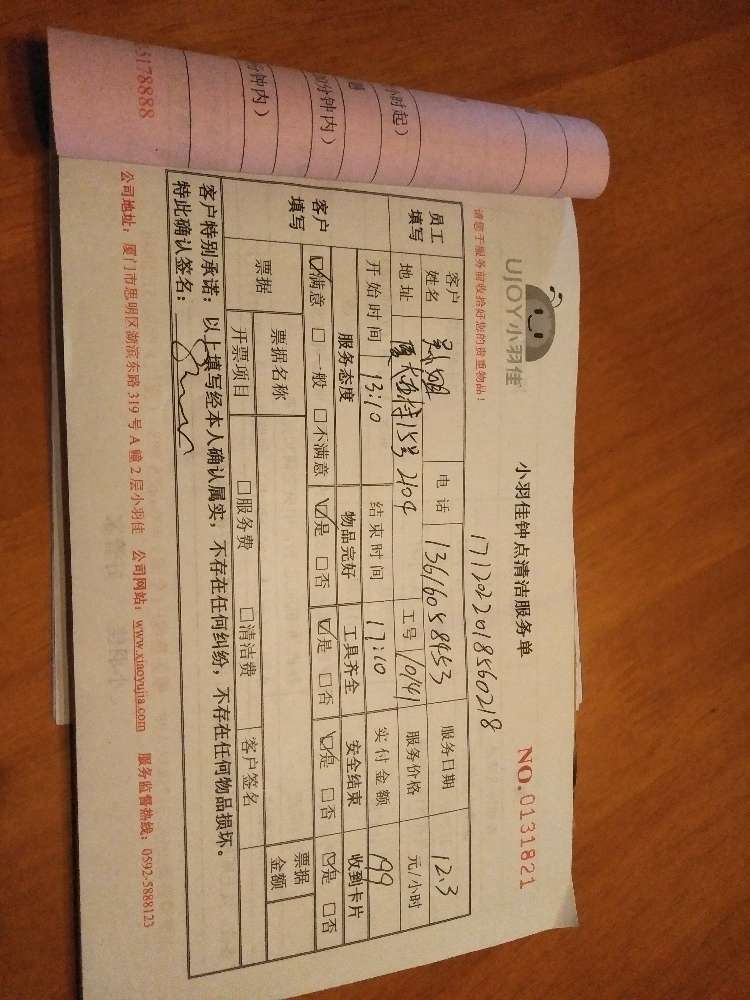 UJOY小羽佳
小羽佳钟点清洁服务单
NO.0131821
请您于服务前收拾好您的贵重物品！
1712022018560218
员工填写
客户姓名 电话 13616058453 服务日期 12.3
地址 厦大西村15号2104 工号 10141 服务价格 元/小时
开始时间 13:10 结束时间 17:10 实付金额 199
客户填写
服务态度 物品完好 工具齐全 安全结束 收到卡片
☑满意 □一般 □不满意 ☑是 □否 ☑是 □否 ☑是 □否 ☑是 □否
票据 票据名称 票据金额
开票项目 □服务费 □清洁费 客户签名
客户特别承诺：以上填写经本人确认属实，不存在任何纠纷，不存在任何物品损坏。
特此确认签名：
公司地址：厦门市思明区湖滨东路319号A幢2层小羽佳 公司网站：www.xiaoyujia.com 服务监督热线：0592-5888123
小时起）
分钟内）
分钟内）
5178888